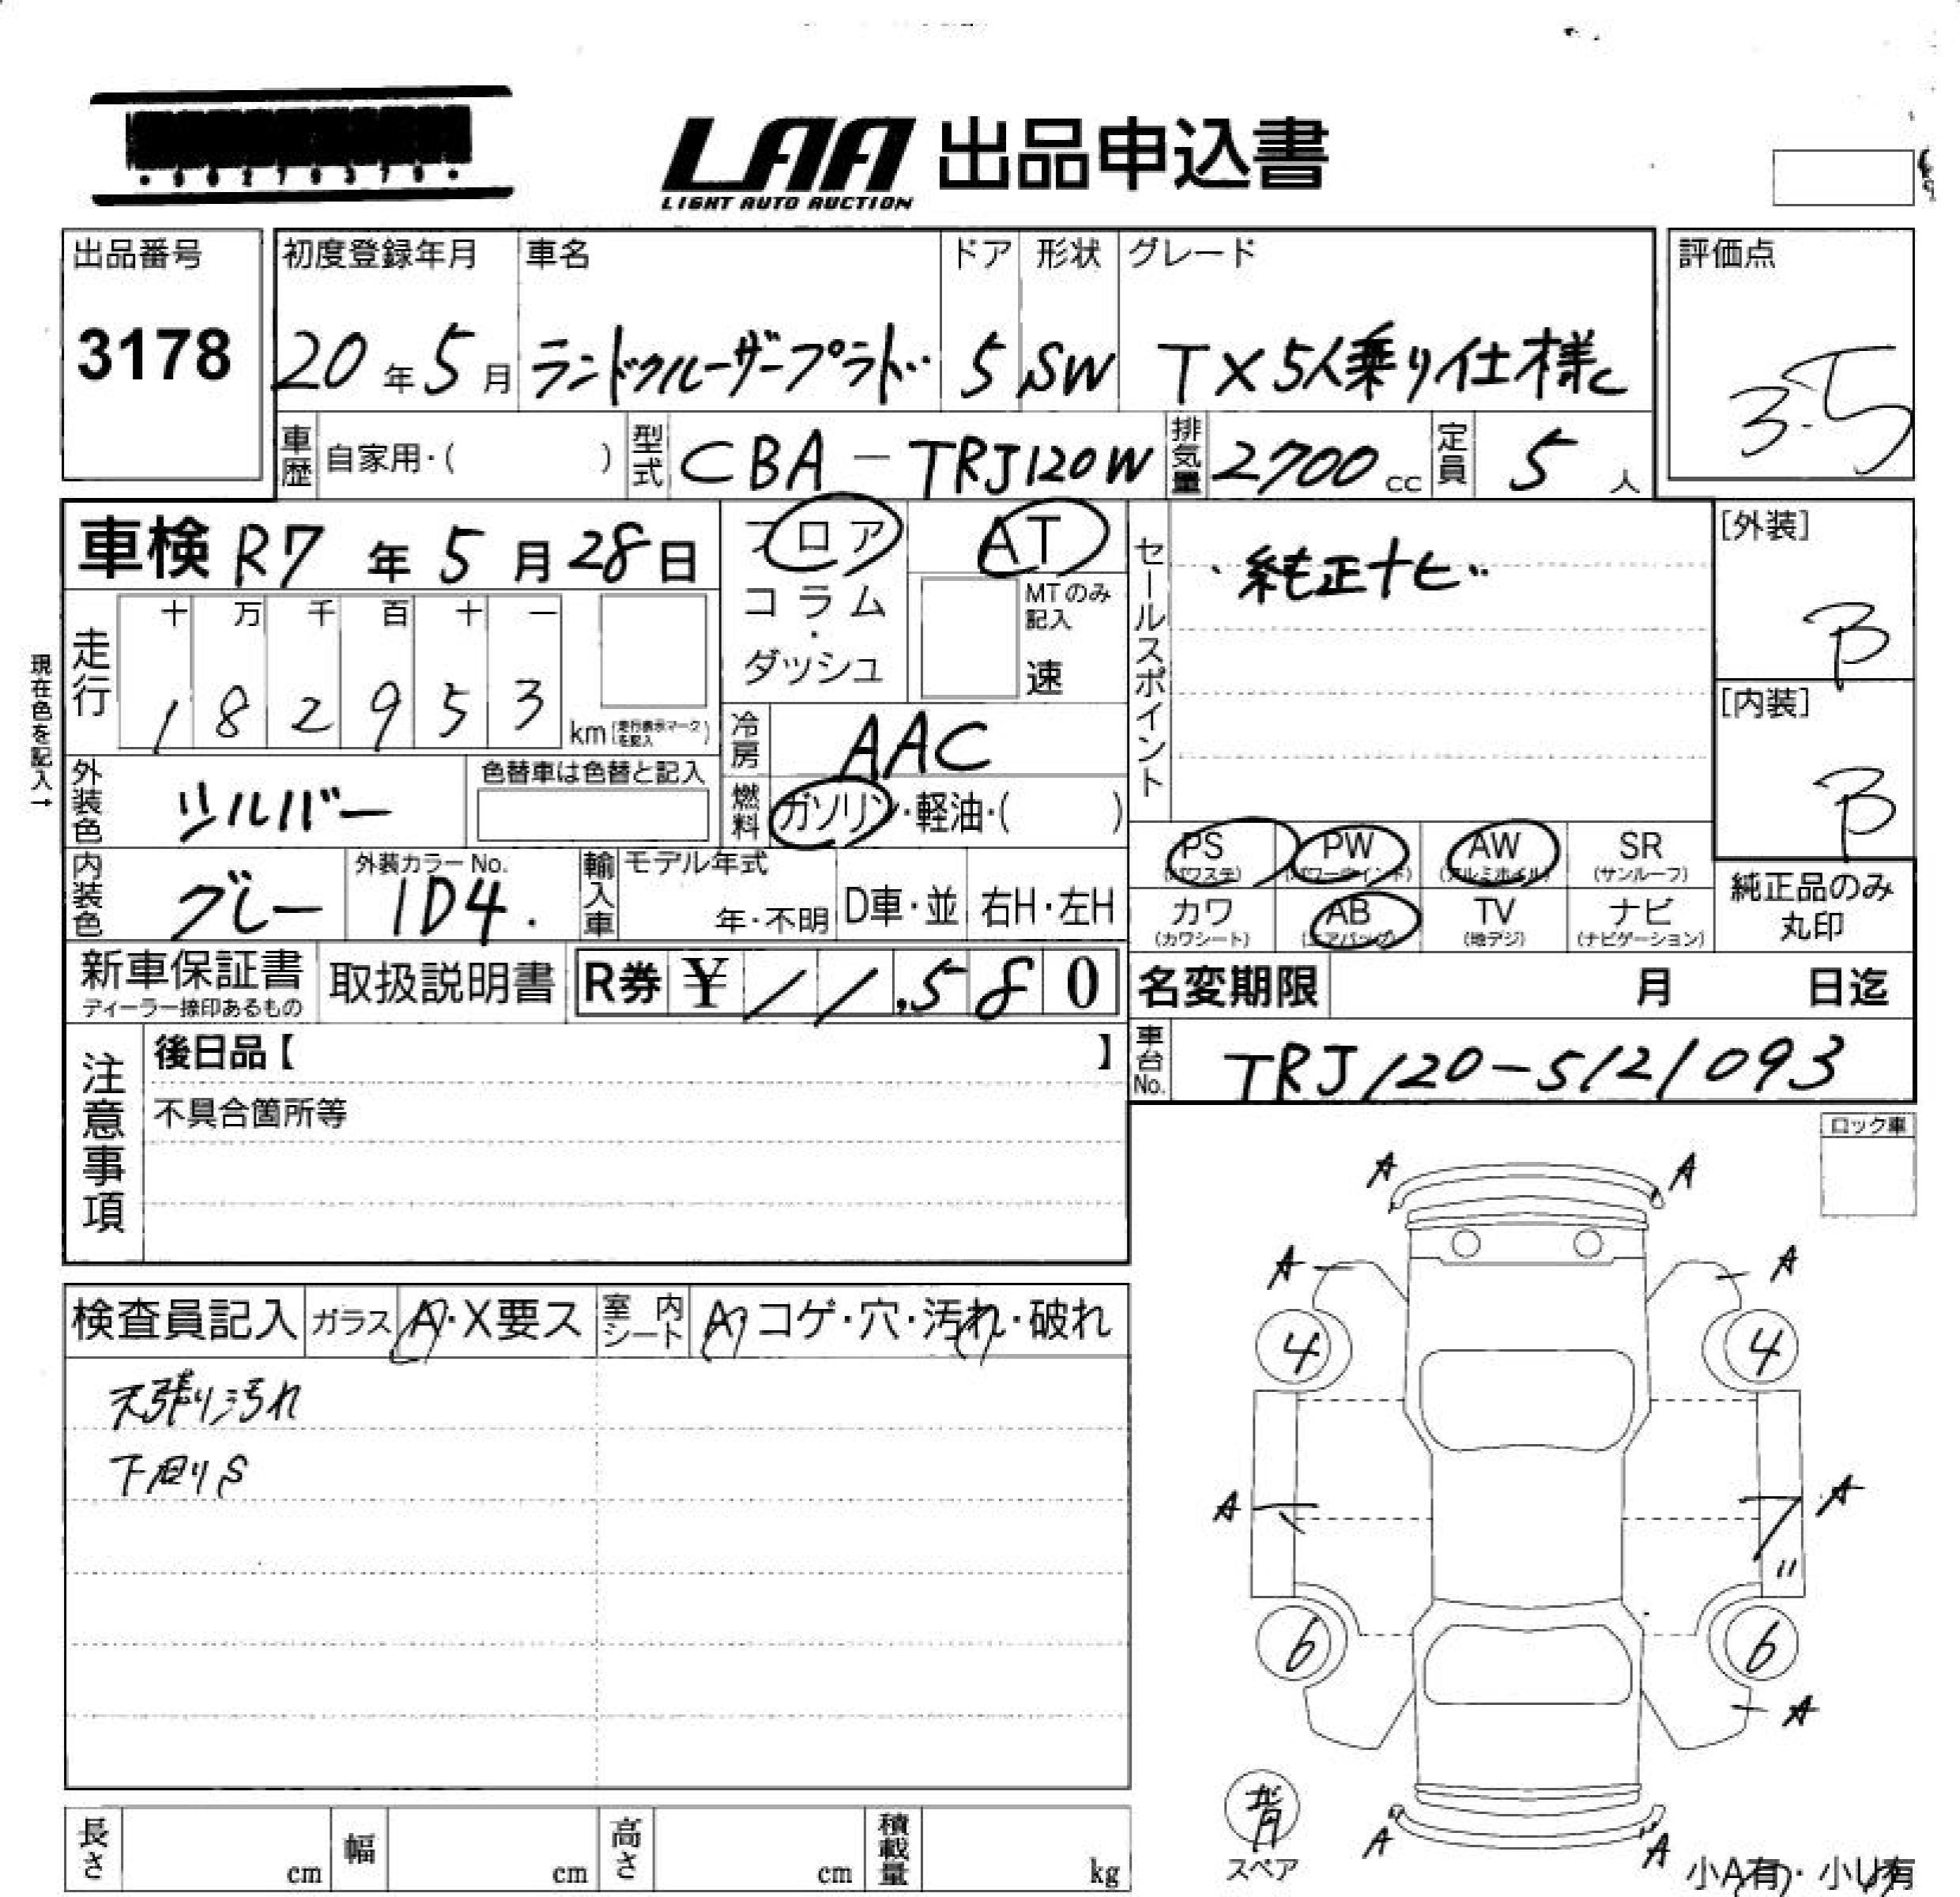 LAA 出品申込書
LIGHT AUTO AUCTION
出品番号 初度登録年月 車名 ドア 形状 グレード 評価点
3178 20年5月 ランドクルーザープラド 5 SW TX5人乗り仕様 3.5
車歴 自家用・( ) 型式 CBA-TRJ120W 排気量 2700cc 定員 5人
車検 R7年5月28日 フロア AT
コラム・ダッシュ MTのみ記入 速
セールスポイント ・純正ナビ
[外装] B
[内装] B
走行 十 万 千 百 十 一
1 8 2 9 5 3 km(走行表示マークを記入)
現在色を記入→
冷房 AAC
燃料 ガソリン・軽油・( )
外装色 シルバー 色替車は色替と記入
内装色 グレー 外装カラーNo. 1D4. 輸入車 モデル年式 年・不明 D車・並 右H・左H
PS (パワステ) PW (パワーウインド) AW (アルミホイル) SR (サンルーフ)
カワ (カワシート) AB (エアバッグ) TV (地デジ) ナビ (ナビゲーション)
純正品のみ丸印
新車保証書 ディーラー捺印あるもの 取扱説明書 R券 ¥11,580
名変期限 月 日迄
車台No. TRJ120-5121093
注意事項 後日品【 】
不具合箇所等
ロック車
検査員記入 ガラス A・X要ス 室内シート A・コゲ・穴・汚れ・破れ
天張り汚れ
下回りS
A A
A A
4 4
A A
〃
6 6
A
背
スペア
A A
小A有・小U有
長さ cm 幅 cm 高さ cm 積載量 kg